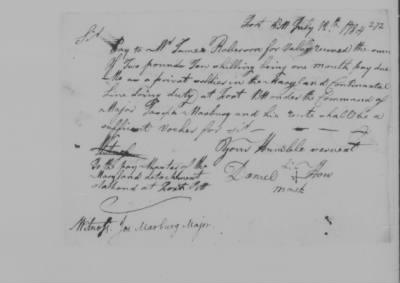 Fort Pitt July 18th 1784 272
Sir
Pay to Mr James Roberson for Valley recued the sum
of Two pounds Ten shilling being one month pay due
Me as a private soldier in the Maryland Continantal
Line doing duty at Fort Pitt under the Command of
Major Joseph Marbury and his recte shall be a
sufficent Vocher for Sir
Your Humble servent
Witness
To the pay Master of the
Maryland detachment
stationd at Fort Pitt
Daniel his
mark
Witness. Jos Marbury Major.